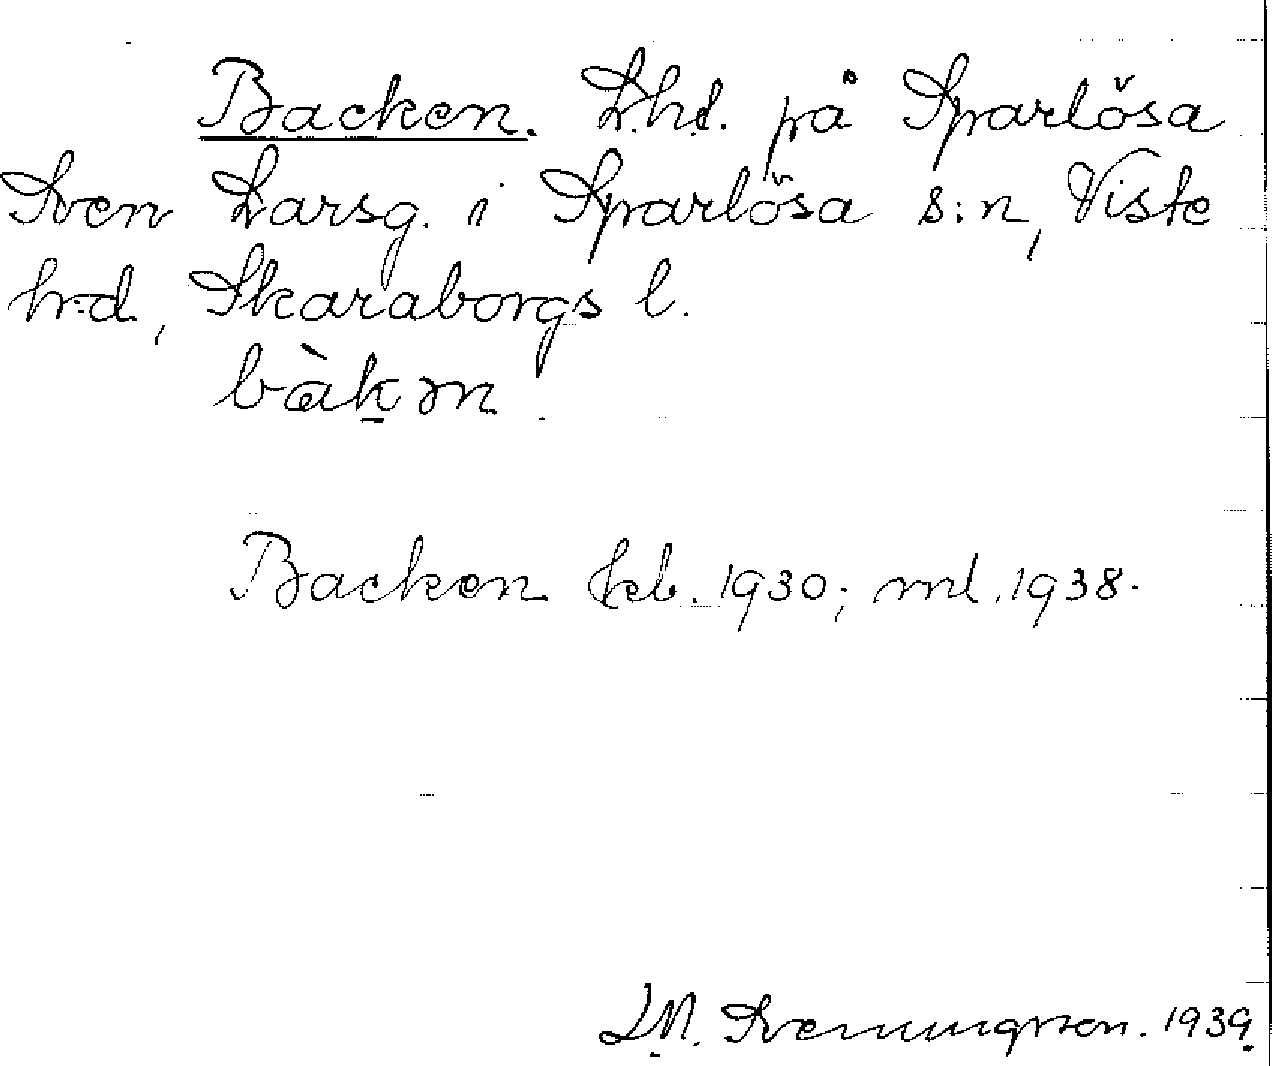 Backen. L.hl. på Sparlösa
Sven Larsg. i Sparlösa s:n, Viste
h:d, Skaraborgs l.
bàk m
Backen kb. 1930; ml. 1938.
S.N. Svenungsson. 1939.